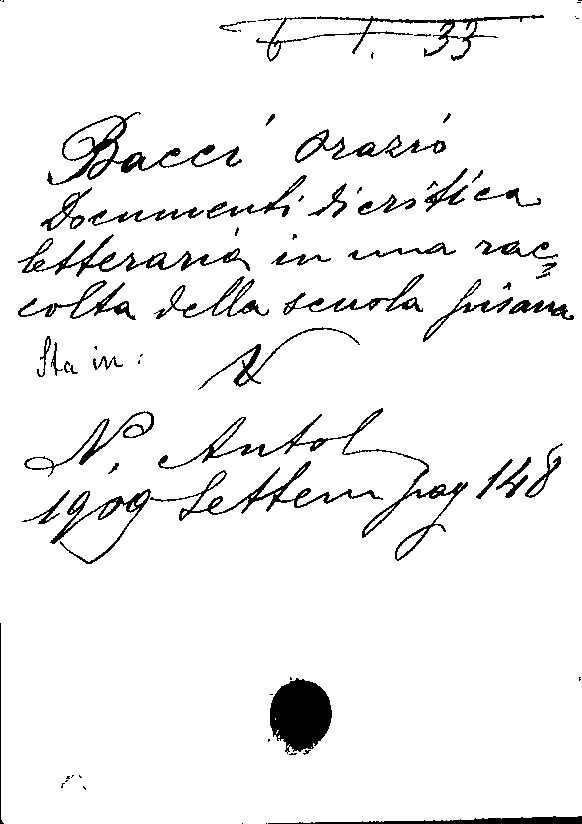 6 1. 33
Bacci Orazio
Documenti di critica
letteraria in una rac=
colta della scuola pisana
Sta in:
N. Antol
1909 Settem pag 148